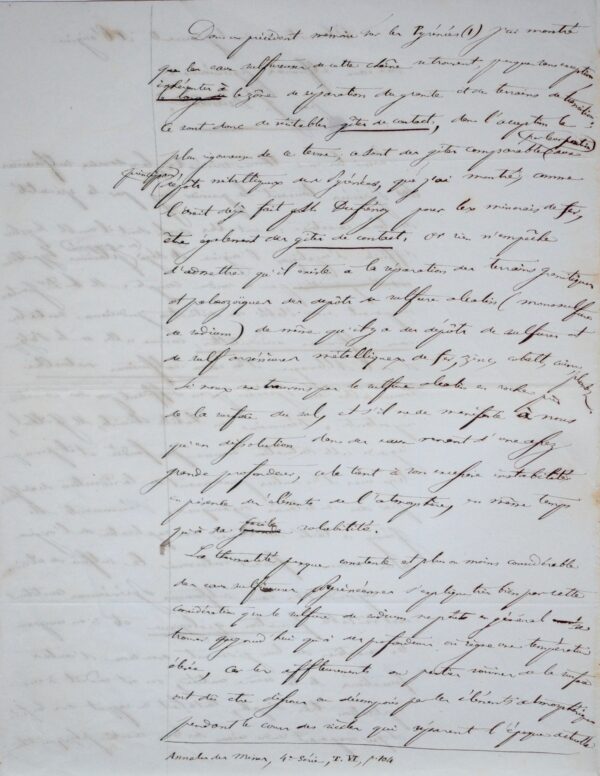 Dans un précédent mémoire sur les Pyrénées (1) j'ai montré
que les eaux sulfureuses de cette chaîne se trouvent presque sans exception
la zône de séparation du granite et du terrain de transition,
ce sont donc de véritables gîtes de contact, dans l'acception la
plus rigoureuse de ce terme, ce sont des gîtes comparables aux
dépôts métalliques des Pyrénées, que j'ai montrés, comme
l'avait déjà fait Dufrénoy pour les minerais de fer,
être également des gîtes de contact. Or rien n'empêche
d'admettre qu'il existe à la séparation des terrains granitiques
et paléozoïques des dépôts de sulfure alcalin (monosulfure
de sodium) de même qu'il y a des dépôts de sulfures et
de sulfo arséniures métalliques de fer, zinc, cobalt, cuivre, plomb &
Si nous ne trouvons pas le sulfure alcalin en roche près
de la surface du sol, et s'il ne se manifeste à nous
qu'en dissolution dans des eaux venant d'une assez
grande profondeur, cela tient à son excessive instabilité
en présence des éléments de l'atmosphère, en même temps
qu'à sa facile solubilité.
La thermalité presque constante et plus ou moins considérable
des eaux sulfureuses Pyrénéennes s'explique très bien par cette
considération que le sulfure de sodium ne peut en général se
trouver aujourd'hui qu'à des profondeurs où règne une température
élevée, car les affleurements ou parties voisines de la surface
ont dû être dissous ou décomposés par les éléments atmosphériques
pendant le cours des siècles qui séparent l'époque actuelle
Annales des Mines, 4e Série, T. VI, p. 104